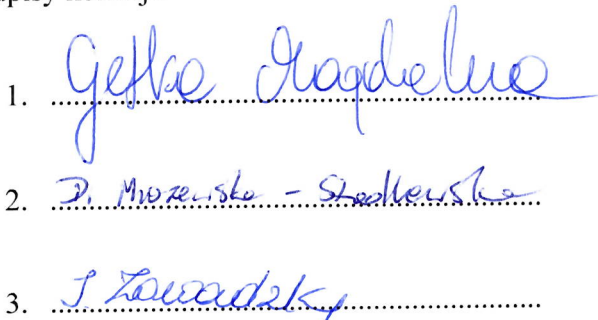 1. Gefka Magdalena
2. D. Mrozewska - Szadkowska
3. J. Zawadzky